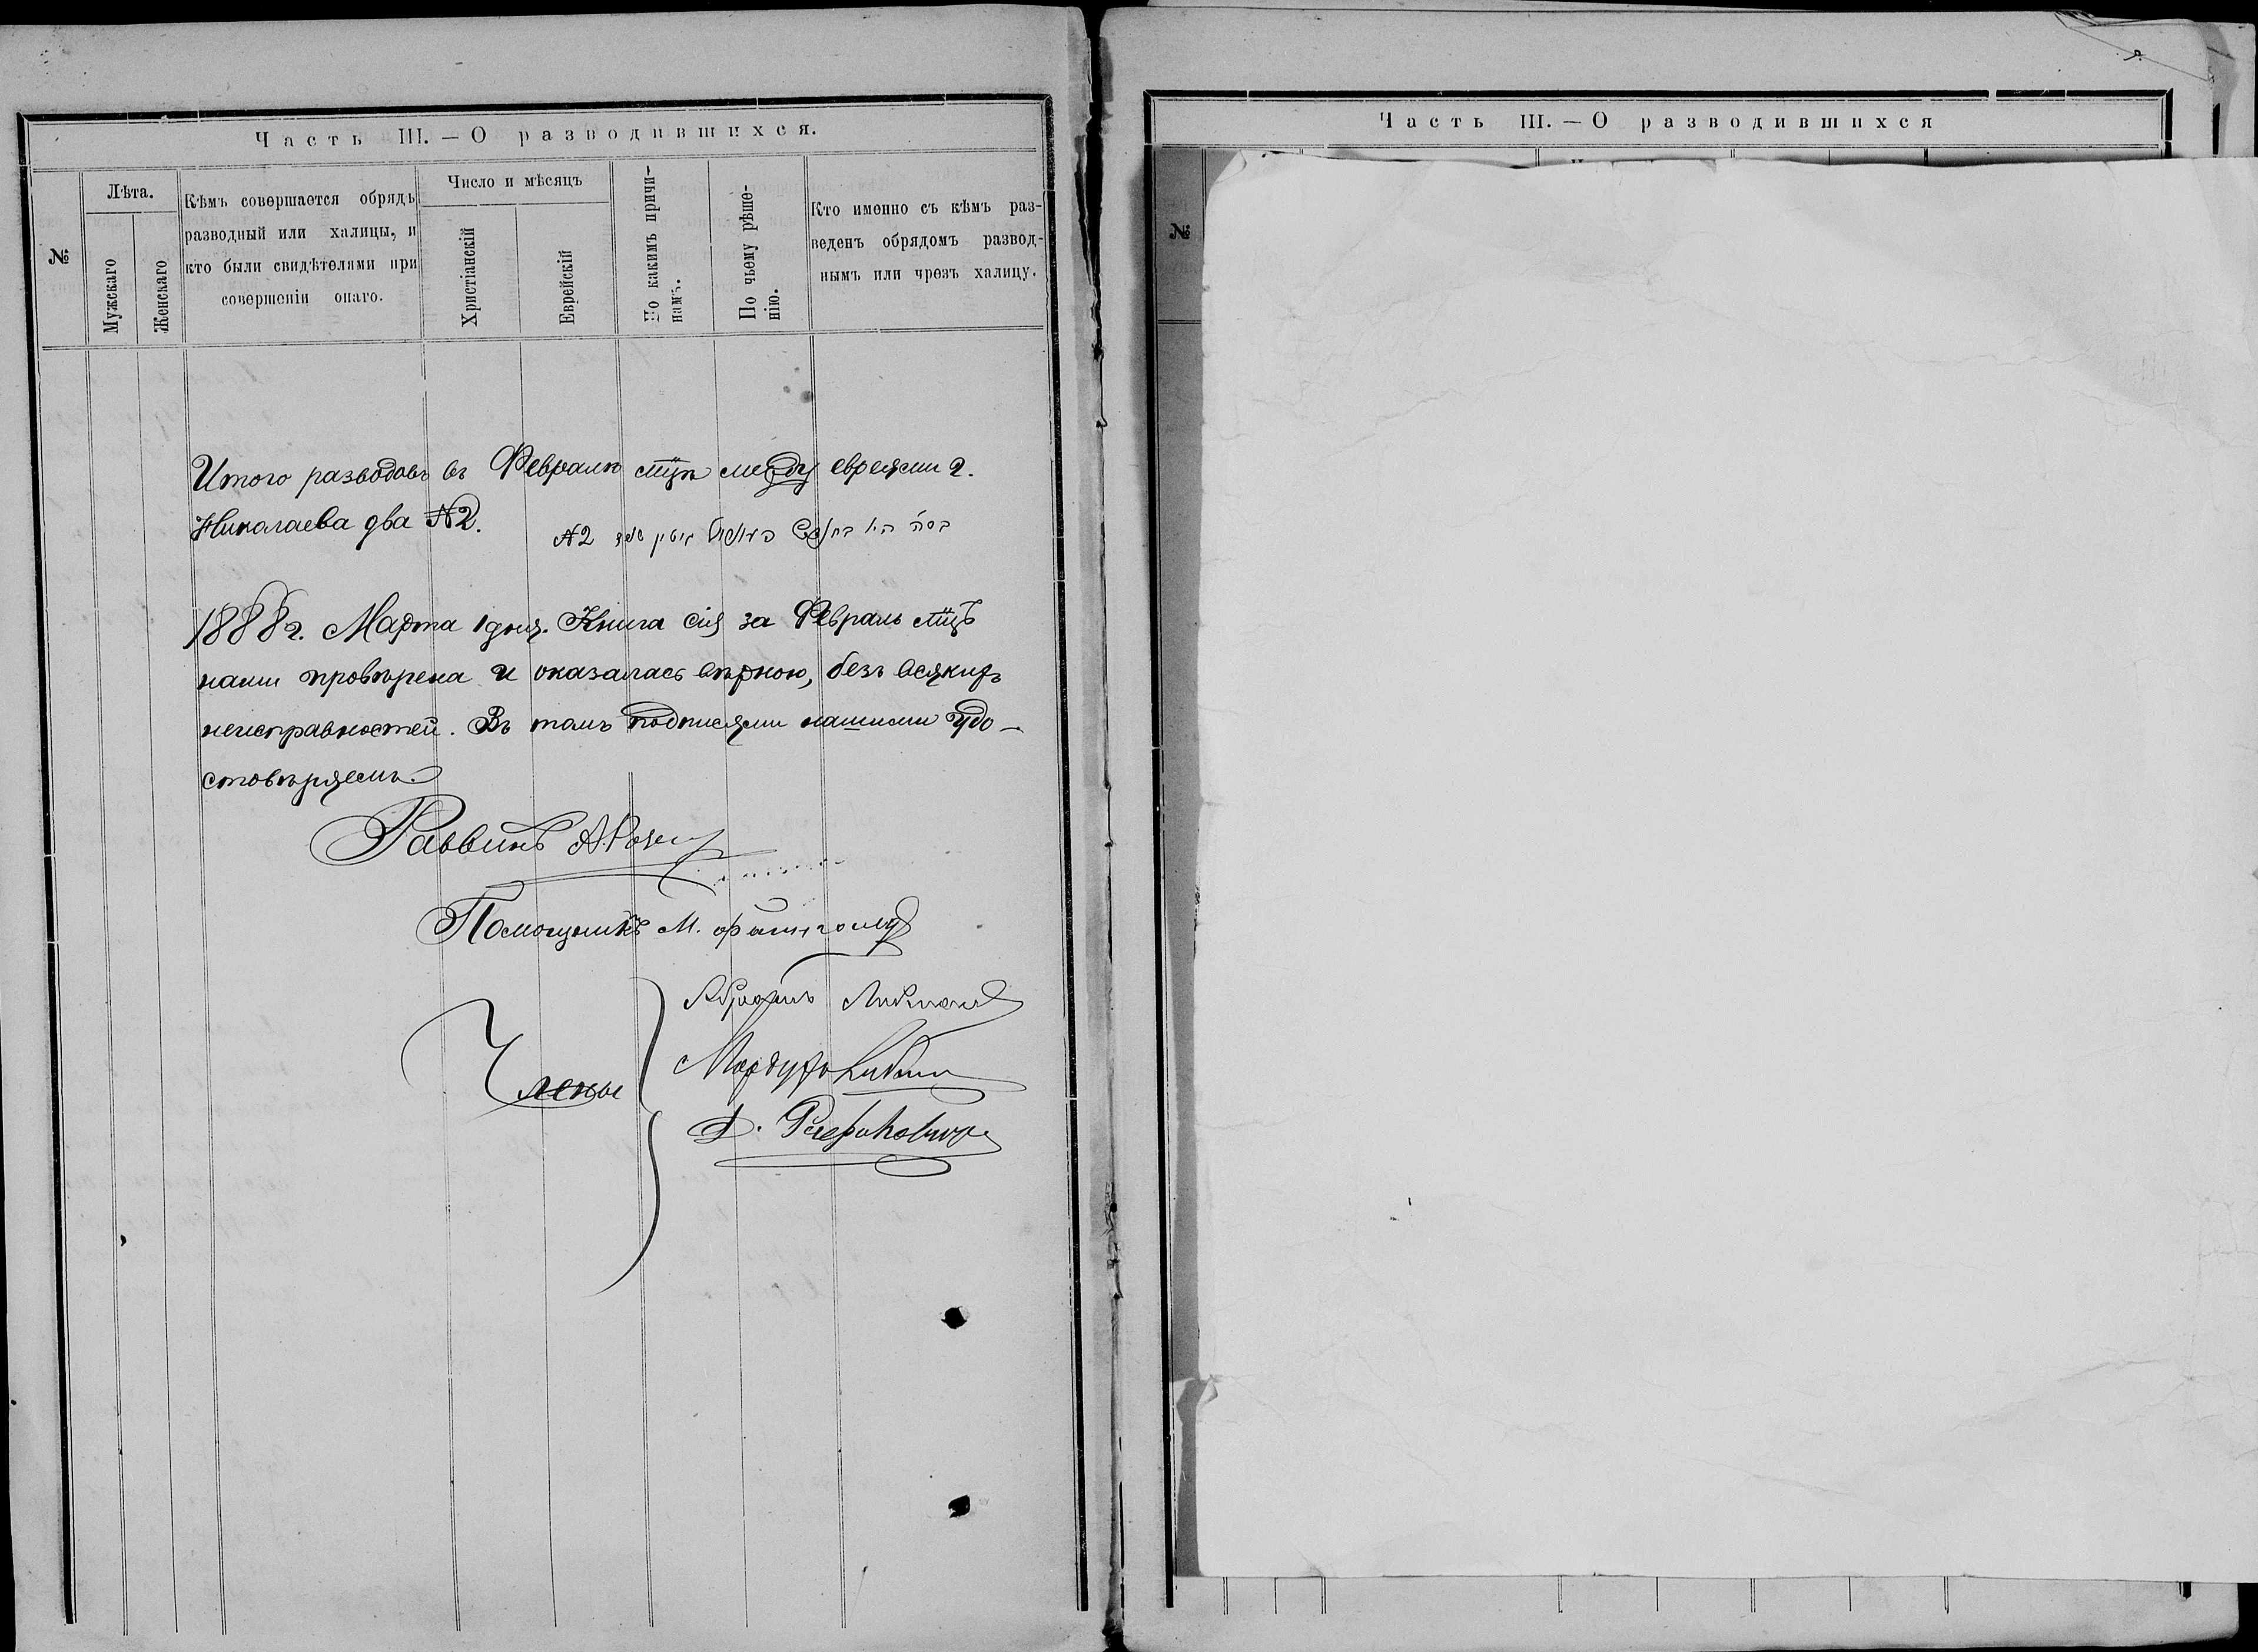 Часть III. — О разводившихся.
№
Лѣта.
Мужскаго
Женскаго
Кѣмъ совершается обрядъ
разводный или халицы, и
кто были свидѣтелями при
совершеніи онаго.
Число и мѣсяцъ
Христіанскій
Еврейскій
По какимъ причи-
намъ.
По чьему рѣше-
нію.
Кто именно съ кѣмъ раз-
веденъ обрядомъ развод-
нымъ или чрезъ халицу.
Итого разводовъ въ Февралѣ мцѣ между евреями г.
Николаева два №2.
№2
1888 г. Марта 1 дня. Книга сія за Февраль мцъ
нами провѣрена и оказалась вѣрною, безъ всякихъ
неисправностей. Въ томъ подписями нашими удо-
стовѣряемъ.
Раввинъ А.
Помощникъ М.
Члены
Абрамъ
Мордухъ
Часть III. — О разводившихся
№